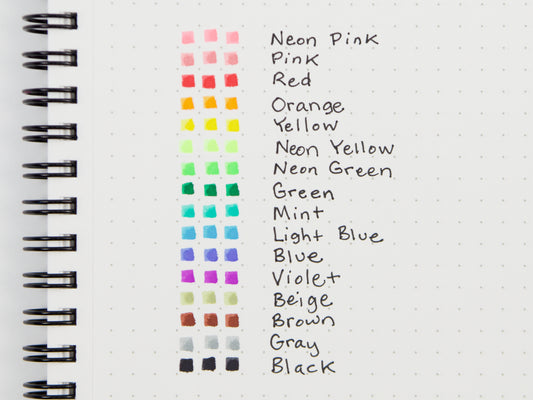 Neon Pink
Pink
Red
Orange
Yellow
Neon Yellow
Neon Green
Green
Mint
Light Blue
Blue
Violet
Beige
Brown
Gray
Black